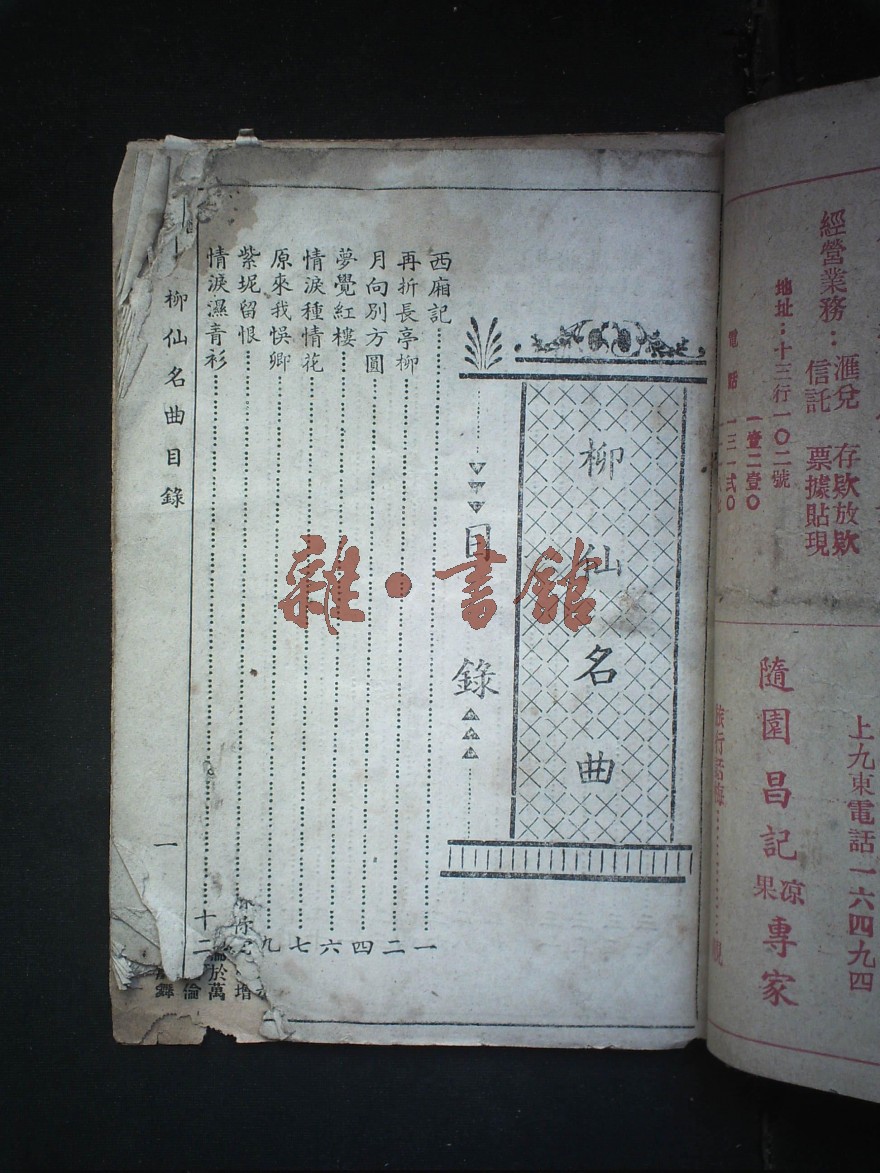 經營業務：滙兌 存欵放欵
信託 票據貼現
地址：十三行一〇二號
電話 一壹二壹〇
一三一弍〇
上九東電話一六四九四
隨園昌記凉果專家
柳仙名曲
目錄
西廂記 一
再折長亭柳 二
月向別方圓 四
夢覺紅樓 六
情淚種情花 七
原來我悞卿 九
紫坭留恨
情淚濕青衫 十二
柳仙名曲目錄 一
雜·書館